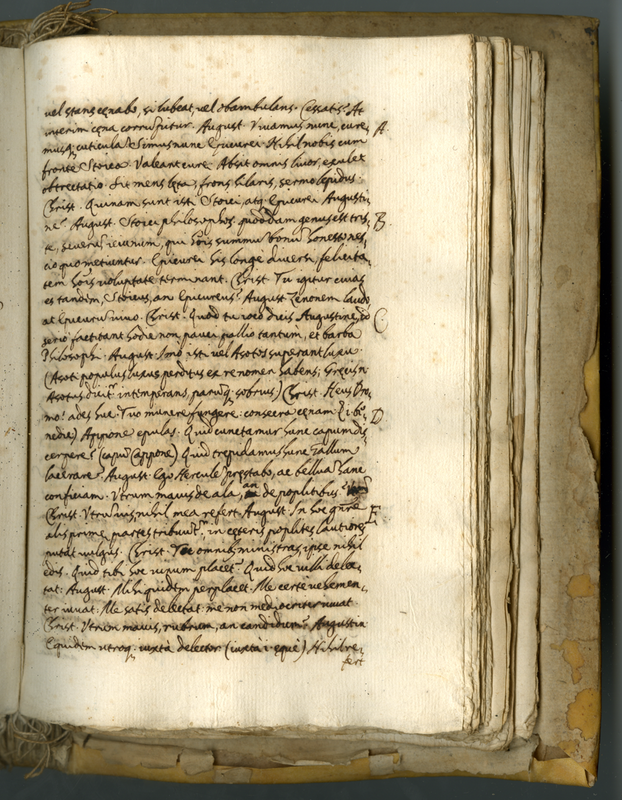 vel stans cęnabo, si lubeat, vel obambulans. Cessatis? At
interim cęna corrumpitur. August. Vivamus nunc, cure, A.
musq; cuticulã. Simus nunc Epicurei. Nihil nobis cum
fronte Stoica. Valeant curę. Absit omnis livor, exulet
obtrectatio. Sit mens lęta, frons hilaris, sermo lepidus.
Christ. Quinam sunt isti Stoici, atq; Epicurei Augusti,
ne? August. Stoici philosophorũ quoddam genus est tris, B.
te, severũ, ieiunium, qui hoĩs summũ bonũ honesto nes,
cio quo metiuntur. Epicurei his longe diversi, felicita,
tem hoĩs voluptate terminant. Christ. Tu igitur cuias
es tandem, Stoicus, an Epicureus? August. Zenonem laudo
at Epicurũ vivo. Christ. Quod tu ioco dicis Augustine, id C.
serio factitant hodie non pauci pallio tantum, et barba
Philosophi. August. Imò isti vel Asotos superant luxu.
(Asoti populus luxus perditus ex re nomen habens; Gręcis n.
Asotus dicit.r intemperans, parumq; sobrius) Christ. Heus Dro,
mo! ades huc. Tuo munere fungere: consecra cęnam (i. be,
nedic) Appone epulas. Quid cunctamur hunc capum dis, D.
cerpere? (capũ Cappone) Quid trepidamus hunc Gallum
lacerare? August. Ego Hercule prestabo, ac bellua hanc
conficiam. Utrum mavis de ala, an de poplitibus?
Christ. Utrũ vis, nihil mea refert. August. In hoc genere E.
alis primę partes tribuunt.r, in cęteris poplites lautiores
putat vulgus. Christ. Tu omnibus ministras, ipse nihil
edis. Quid tibi hoc vinum placet? Quid hoc villũ delec,
tat. August. Mihi quidem perplacet. Me certè vehemen,
ter iuvat. Me satis delectat. me non mediocriter iuvat.
Christ. Utrum mavis, rubrum, an candidum? Augustin.
Equidem utroq; iuxta delector (iuxtà i. eque) Nihil re,
fert